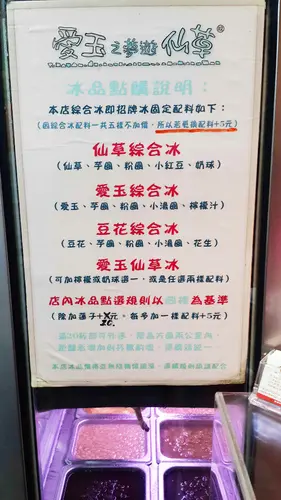 愛玉之夢遊仙草
冰品點購說明：
本店綜合冰即招牌冰固定配料如下：
(因綜合冰配料一共五樣不加價，所以若更換配料+5元)
仙草綜合冰
(仙草、芋圓、粉圓、小紅豆、奶球)
愛玉綜合冰
(愛玉、芋圓、粉圓、小湯圓、檸檬汁)
豆花綜合冰
(豆花、芋圓、粉圓、小湯圓、花生)
愛玉仙草冰
(可加檸檬或奶球選一，或是任選兩樣配料)
店內冰品點選規則以圖樣為基準
(除加蓮子+
20.
每多加一樣配料+5元)